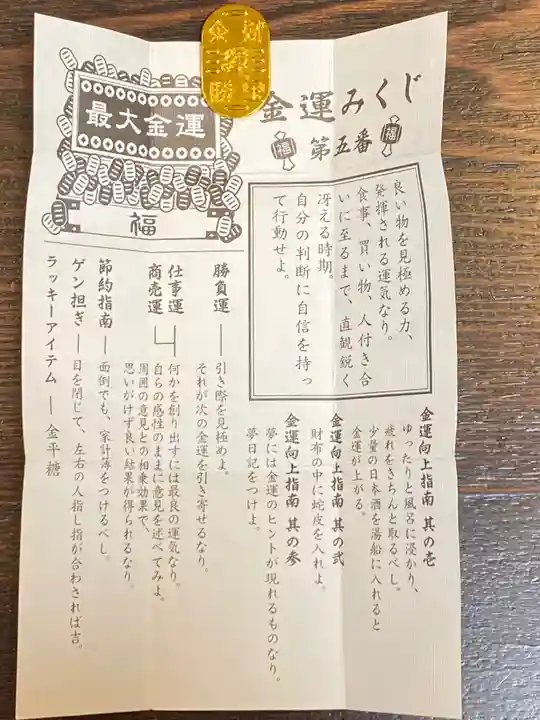 金運みくじ
第五番
福
福
良い物を見極める力、
発揮される運気なり。
食事、買い物、人付き合
いに至るまで、直観鋭く
冴える時期。
自分の判断に自信を持っ
て行動せよ。
最大金運
福
金運向上指南 其の壱
ゆったりと風呂に浸かり、
疲れをきちんと取るべし。
少量の日本酒を湯船に入れると
金運が上がる。
金運向上指南 其の弐
財布の中に蛇皮を入れよ。
金運向上指南 其の参
夢には金運のヒントが現れるものなり。
夢日記をつけよ。
勝負運 ― 引き際を見極めよ。
それが次の金運を引き寄せるなり。
仕事運
商売運
何かを創り出すには最良の運気なり。
自らの感性のままに意見を述べてみよ。
周囲の意見との相乗効果で、
思いがけず良い結果が得られるなり。
節約指南 ― 面倒でも、家計簿をつけるべし。
ゲン担ぎ ― 目を閉じて、左右の人指し指が合わされば吉。
ラッキーアイテム ― 金平糖